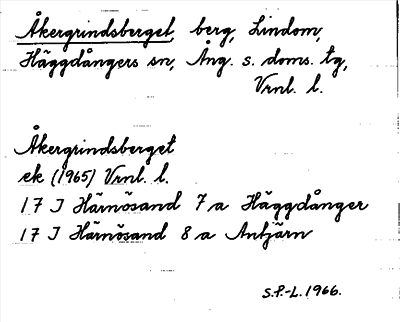 Åkergrindsberget, berg, Lindom,
Häggdångers sn, Ång. s. doms. tg,
Vrnl. l.
Åkergrindsberget
ek (1965) Vrnl. l.
17 J Härnösand 7 a Häggdånger
17 J Härnösand 8 a Antjärn
S.F.-L. 1966.